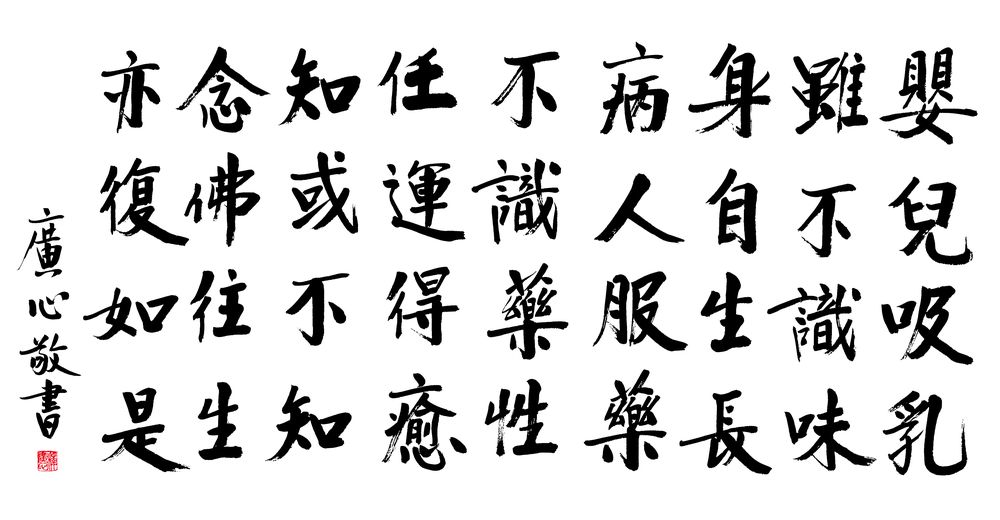 嬰兒吸乳
雖不識味
身自生長
病人服藥
不識藥性
任運得癒
知或不知
念佛往生
亦復如是
廣心敬書